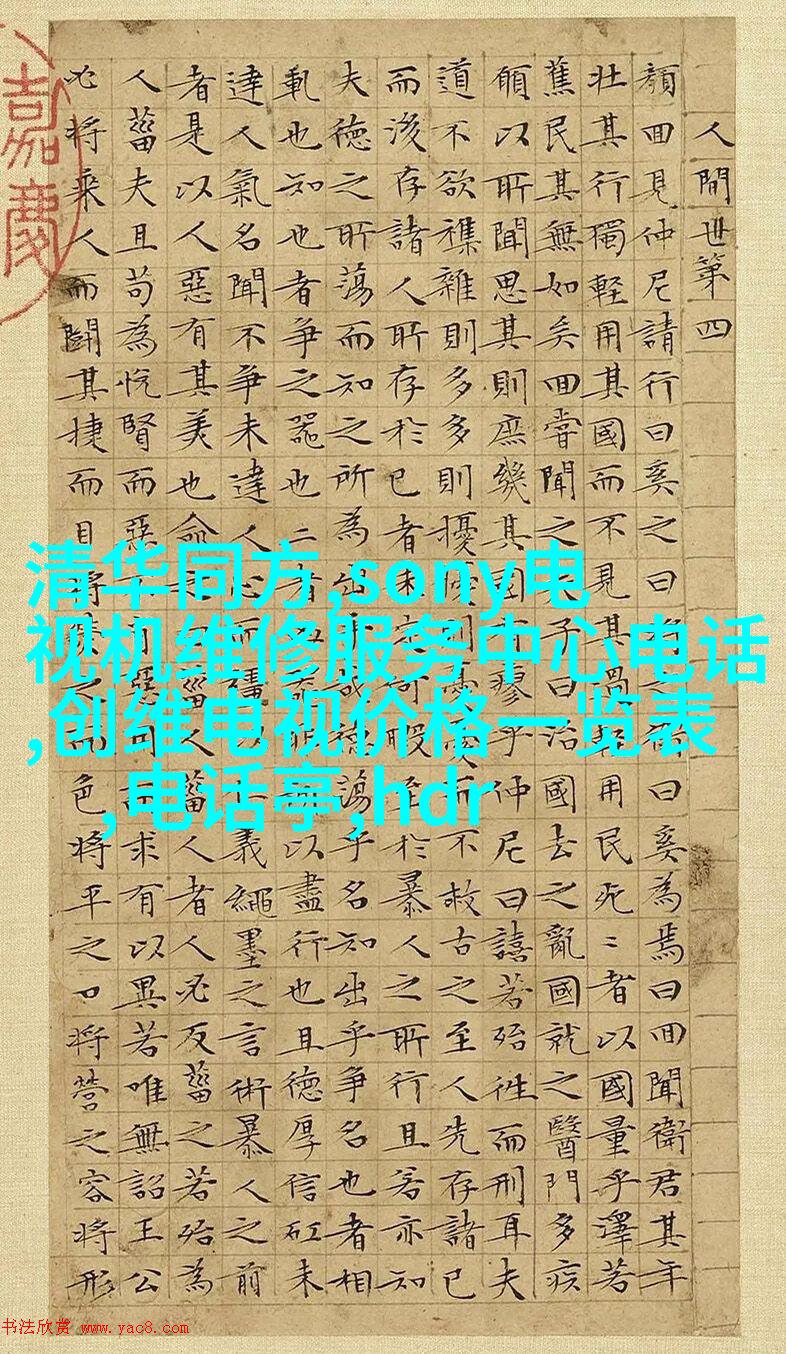 人間世第四
顔回見仲尼請行曰奚之曰之曰奚為焉曰回聞衛君其年
壯其行獨輕用其國而不見其過輕用民死〻者以國量乎澤若
蕉民其無如矣回嘗聞之夫子曰治國去之亂國就之醫門多疾
願以所聞思其則庶幾其國瘳乎仲尼曰譆若殆往而刑耳夫
道不欲襍雜則多多則擾則憂而不救古之至人先存諸已
而後存諸人所存於已者未何暇至於暴人之所行且若亦知
夫德之所蕩而知之所為出乎哉德蕩乎名知出乎爭名也者相
軋也知也者爭之器也二者以盡行也且德厚信矼未
達人氣名聞不爭未達人心而彊義繩墨之言術暴人之前
者是以人惡有其美也命菑人菑人者人必反菑之若殆為
人菑夫且苟為悅賢而惡不惡求有以異若唯無詔王公
必將乘人而鬭其捷而目將之而色將平之口將營之容將形
嘉慶
清华同方,sony电
视机维修服务中心电话
,创维电视价格一览表
,电话亭,hdr
书法欣赏 www.yac8.com